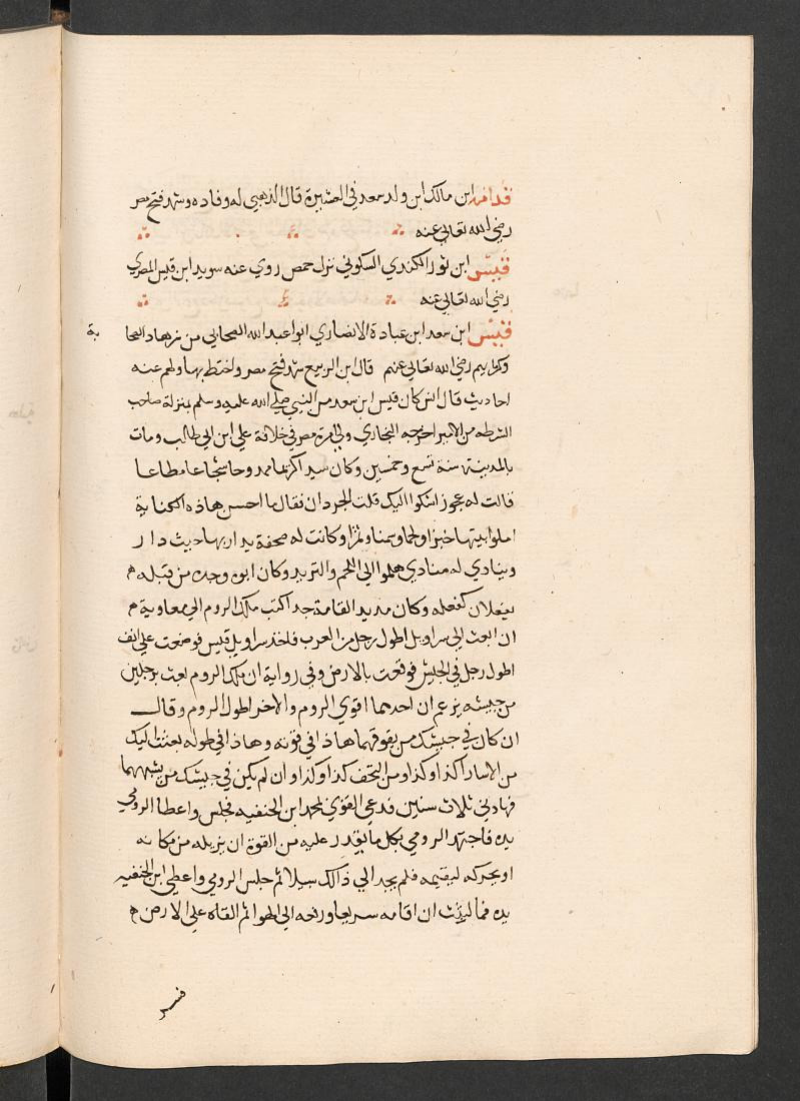 قدامه ابن مالك ابن ولد سعد في العشيرة قال الذهبي له وفاده وشهد فتح مصر
رضي الله تعالي عنه
قيس ابن ثور الكندي السكوني نزل حمص روي عنه سويد ابن قيس المصري
رضي الله تعالي عنه
قيس ابن سعد ابن عبادة الانصاري ابوا عبد الله الصحابي من زهاد الصحا بة
وكرايم رضي الله تعالي عنهم قال ابن الربيع شهد فتح مصر واختط بها ولهم عنه
احاديث قال انس كان قيس ابن سعد من النبي صلي الله عليه وسلم بمنزلة صاحب
الشرطه من الامير اخرجه البخاري وولي امرة مصر في خلافة علي ابن ابي طالب ومات
بالمدينة سنة تسع وخمسين وكان سيد اكريما ممدوحا شجاعا مطاعا
قالت له عجوز اشكوا اليك قلت الجردان فقال ما احسن هاذه الكناية
املوا بيتها خبزا ولحما وسمنا وتمرا وكانت له صحفة يدار بها حيث دار
وينادي له منادي هلموا الي اللحم والتريد وكان ابوه وجده من قبله
يفعلان كفعله وكان مديد القامة جدا كتب ملك الروم الي معاوية
ان ابعث الي سراويل اطول رجل من العرب فاخذ سراويل قيس فوضعت علي انف
اطول رجل في الجيش فوقعت بالارض وفي رواية ان ملك الروم بعث برجلين
من جيشه يزعم ان احدهما اقوي الروم والاخر اطول الروم وقال
ان كان في جيشك من يفوقهما هاذا في قوته وهاذا في طوله بعثت اليك
من الاسارا كذا وكذا ومن التحف كذا وكذا وان لم يكن في جيشك من يشبههما
فهادني ثلاث سنين فدعي القوي لمحمد ابن الحنفيه فجلس واعطا الرومي
يده فاجتهد الرومي بكل ما يقدر عليه من القوة ان يزيله من مكانه
او يحركه ليقيمه فلم يجد الي ذالك سبيلا ثم جلس الرومي واعطي ابن الحنفيه
يده فما لبث ان اقامه سريعا ورفعه الي الهوا ثم القاه علي الارض